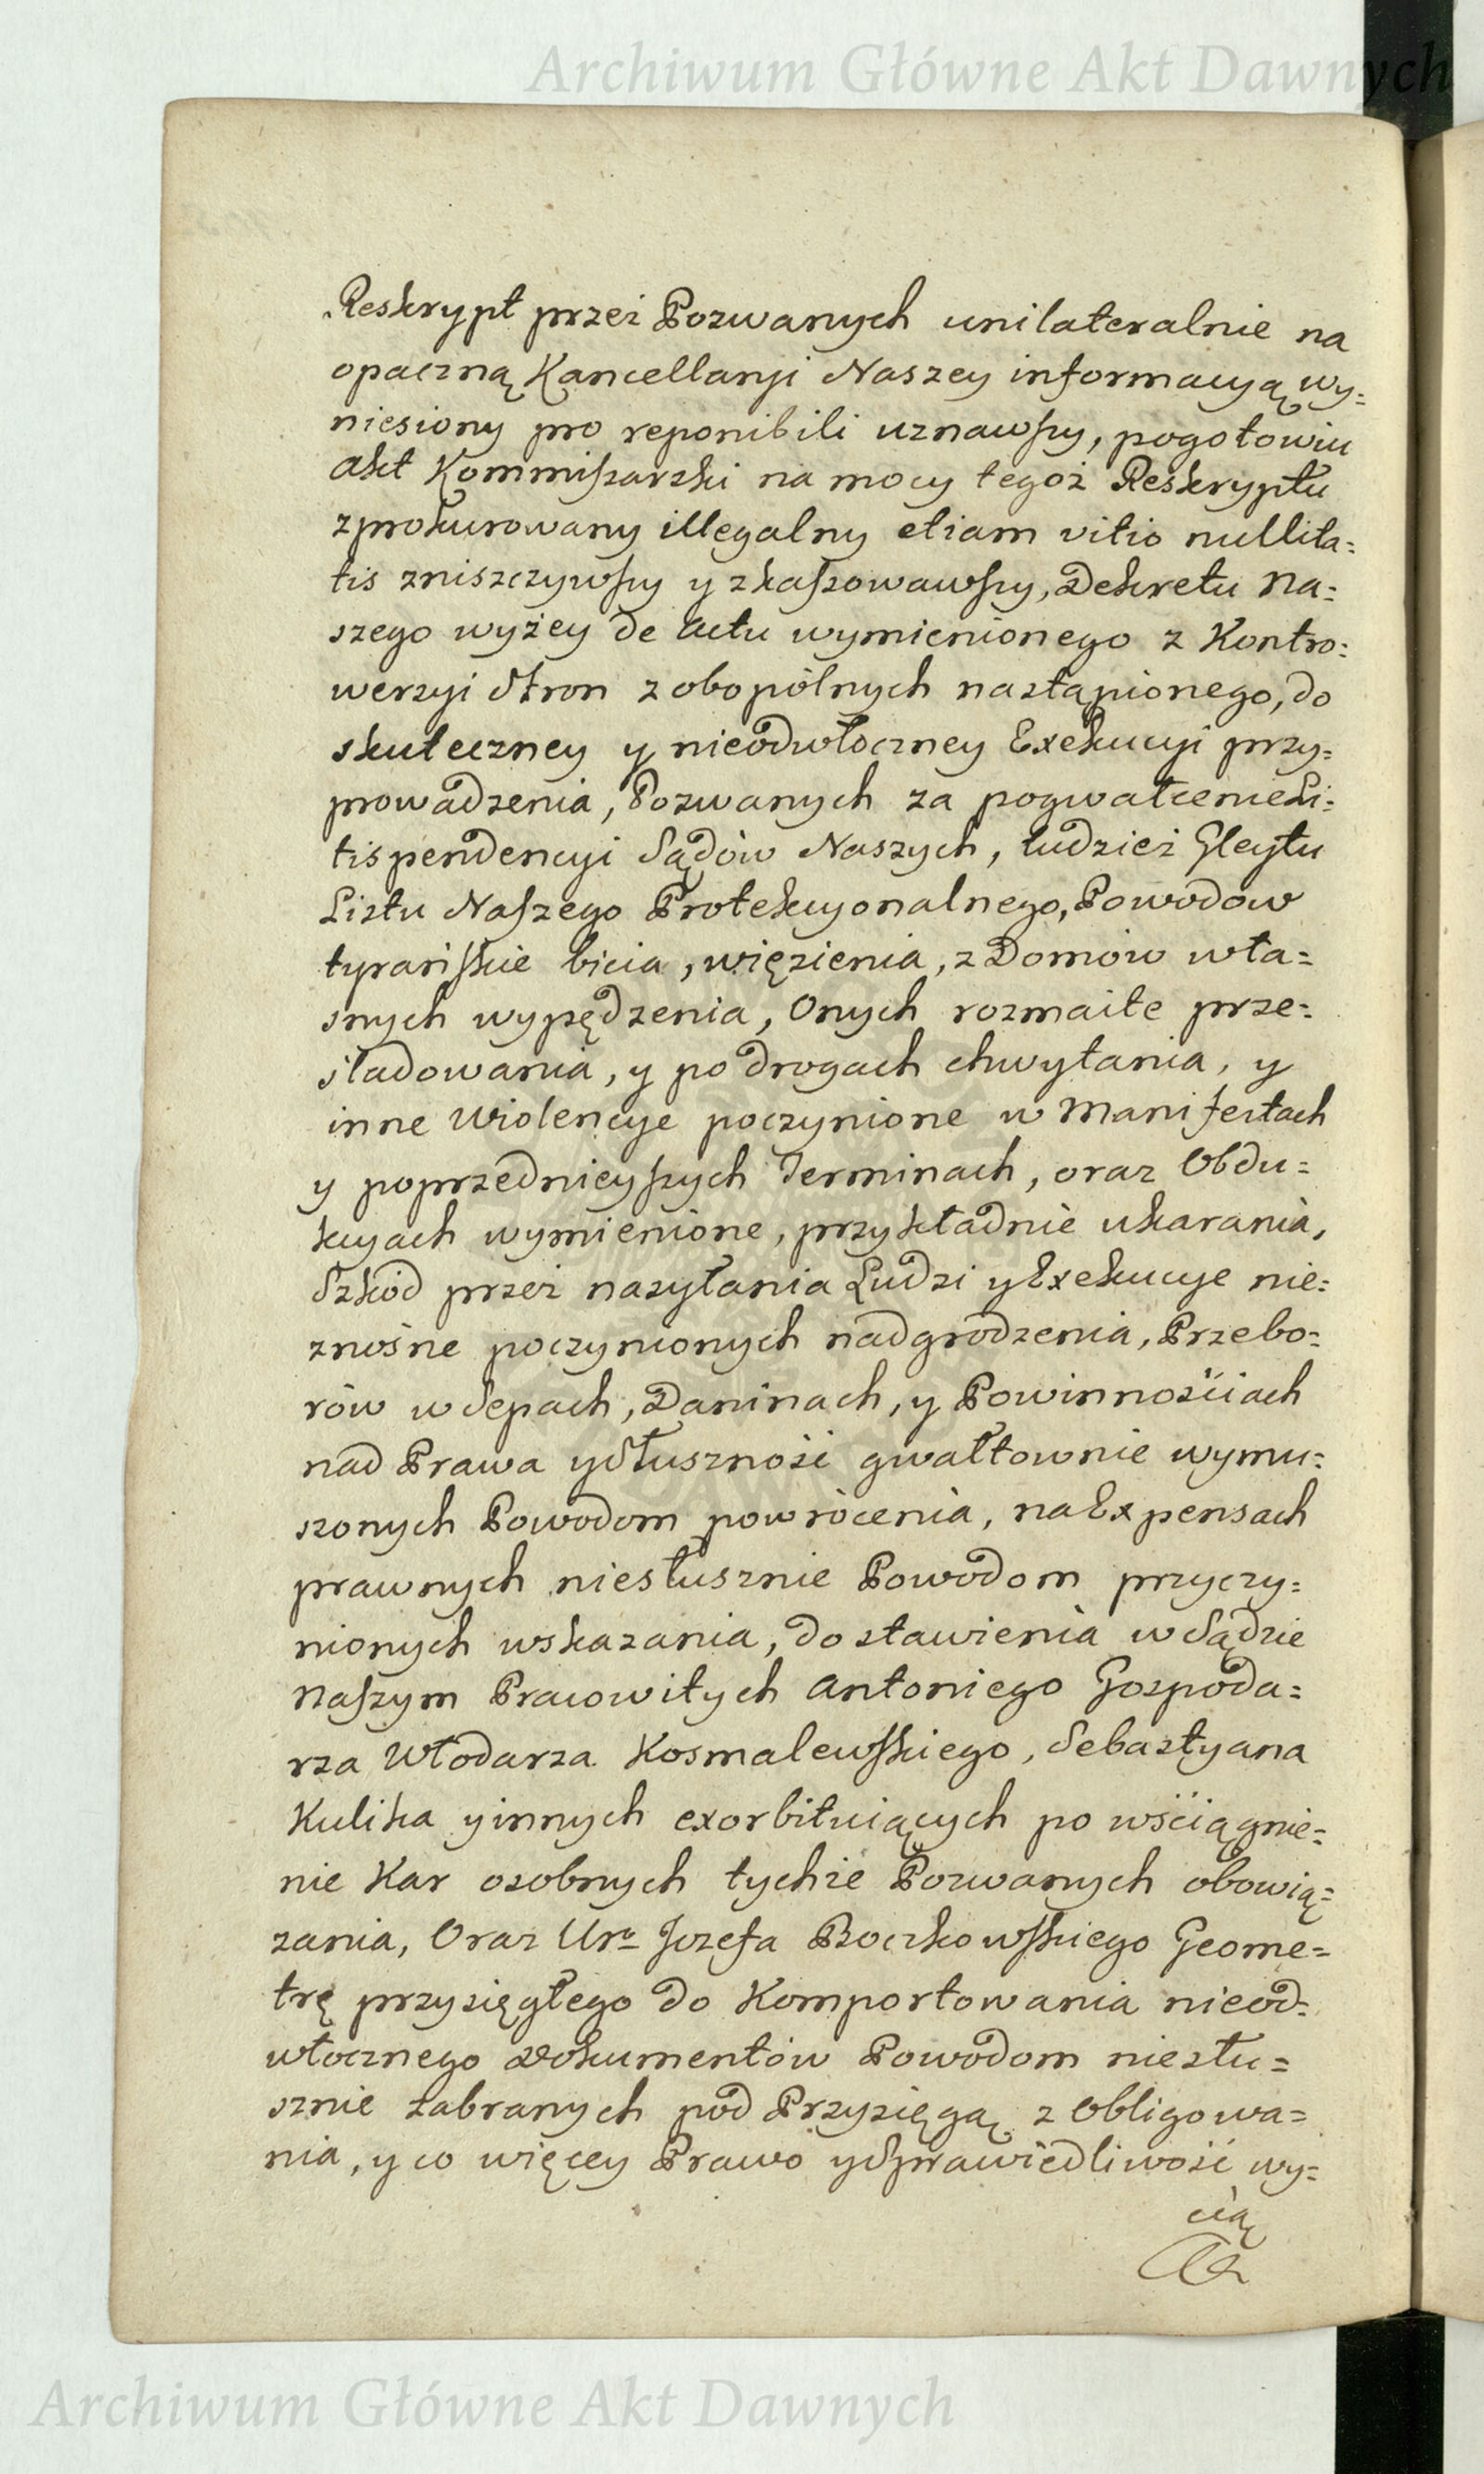 Archiwum Główne Akt Dawnych
Reskrypt przez Pozwanych unilateralnie na
opaczną Kancellaryi Naszey informacyą wy=
niesiony pro reponibili uznawszy, pogotowiu
akt Kommissarski na mocy tegoż Reskryptu
zprokurowany illegalny etiam vitio nullita=
tis zniszczywszy y zkassowawszy, Dekretu Na=
szego wyżey de actu wymienionego z Kontro=
wersyi Stron z obopólnych nastąpionego, do
skuteczney y nieodwłoczney Exekucyi przy=
prowadzenia, Pozwanych za pogwałcenie Li=
tispendencyi Sądów Naszych, tudzież Gleytu
Listu Naszego Protekcyonalnego, Powodow
tyrańskie bicia, więzienia, z Domów wła=
snych wypędzenia, Onych rozmaite prze=
śladowania, y po drogach chwytania, y
inne Wiolencye poczynione w Manifestach
y poprzednieyszych Terminach, oraz Obdu=
kcyach wymienione, przykładnie ukarania,
Szkód przez nasyłania Ludzi y Exekucye nie=
znośne poczynionych nadgrodzenia, Przebo=
rów w Sepach, Daninach, y Powinnościach
nad Prawa y Słusznośi gwałtownie wymu=
szonych Powodom powrócenia, na Expensach
prawnych niesłusznie Powodom przyczy=
nionych wskazania, do stawienia w Sądzie
Naszym Pracowitych Antoniego Gospoda=
rza Włodarza Kosmalewskiego, Sebastyana
Kulika y innych exorbituiących po wściągnie=
nie Kar osobnych tychże Pozwanych obowią=
zania, Oraz Uro Jozefa Boczkowskiego Geome=
trę przysięgłego do Komportowania nieod=
włocznego Dokumentów Powodom niesłu=
sznie zabranych pod Przysięgą z Obligowa=
nia, y co więcey Prawo y Sprawiedliwość wy=
cią
Archiwum Główne Akt Dawnych